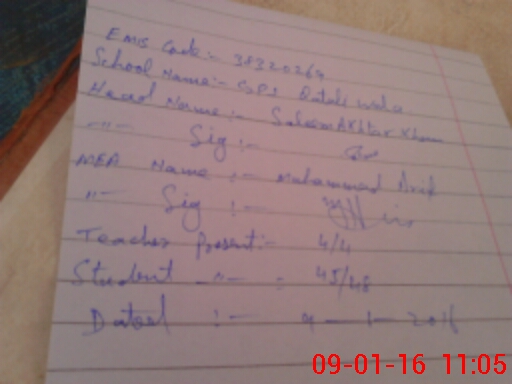 EMIS Code:- 38320269
School Name:- GPS
Head Name:- Saleem Akhtar Khan
-"- Sig :-
MEA Name :- Muhammad Arif
-"- Sig :-
Teacher Present:- 4/4
Student -"- = 45/48
Dated :- 9 - 1 - 2016
09-01-16 11:05